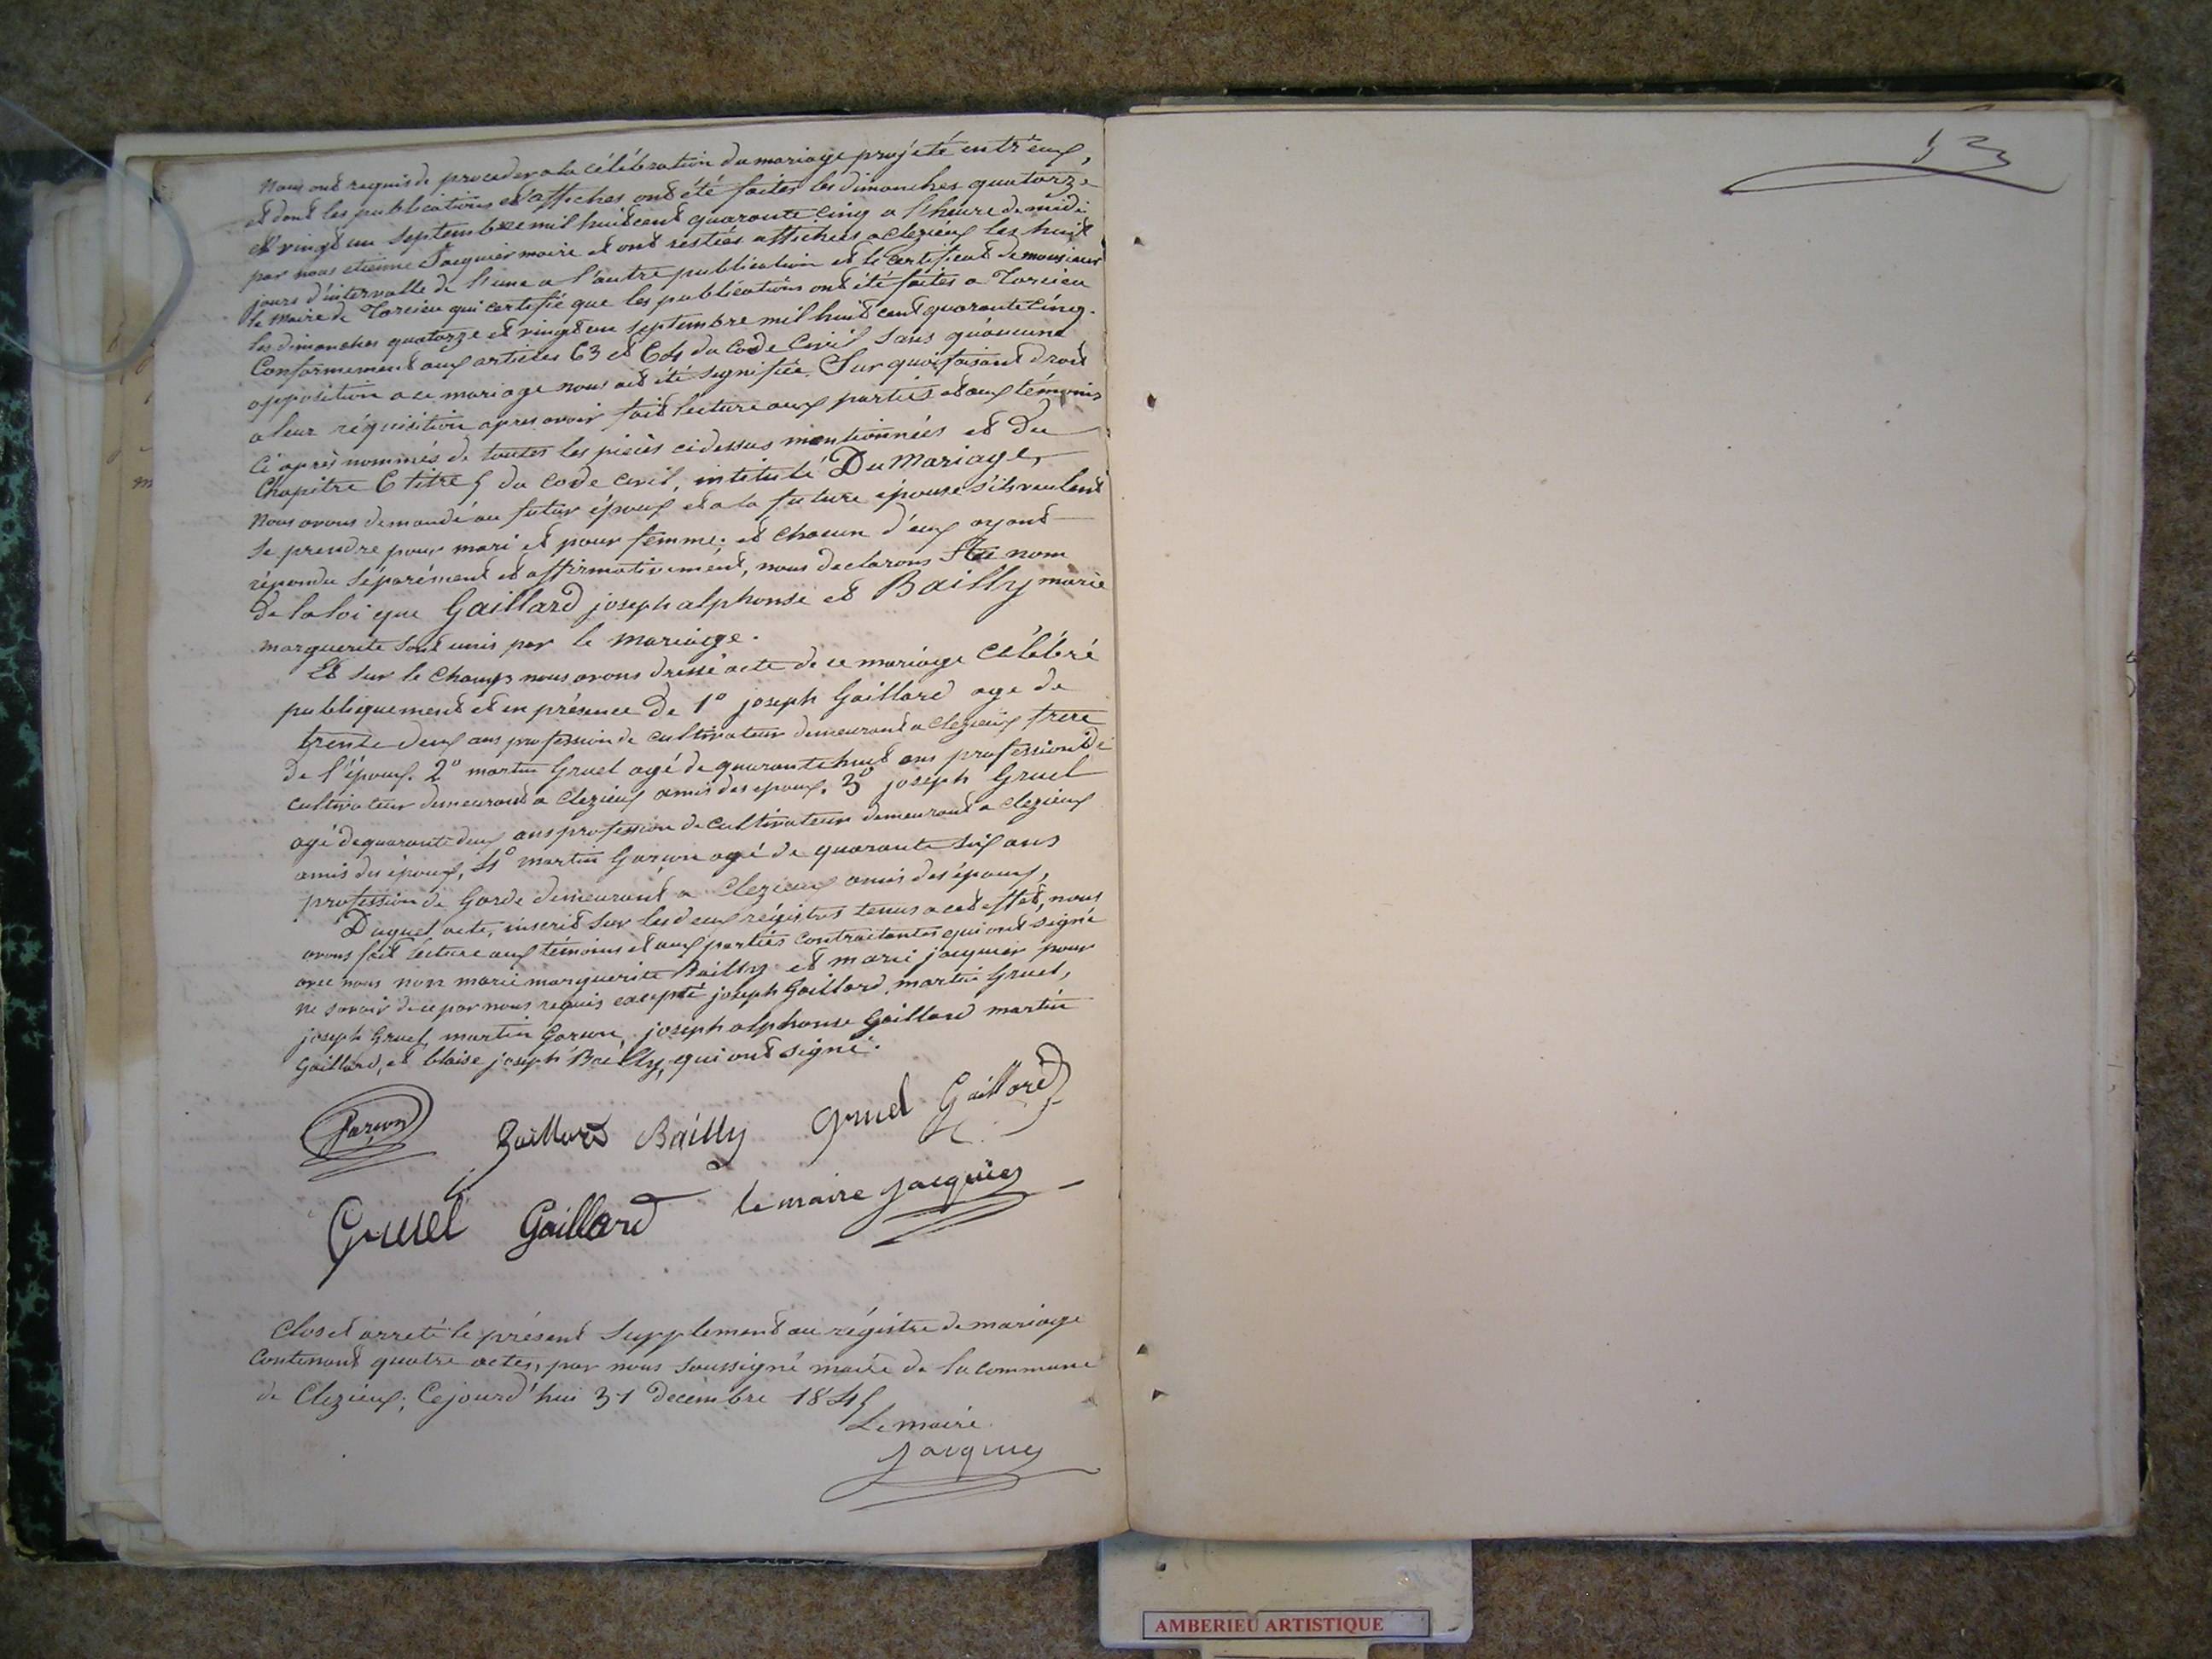 Nous ont requis de proceder a la célébration du mariage projeté entr'eux,
et dont les publications et affiches ont été faites les dimanches quatorze
et vingt un septembre mil huit cent quarante cinq a l'heure de midi
par nous etienne Jacquier maire et ont restées affichées a clezieux les huit
jours d'intervalle de l'une a l'autre publication et le certificat de monsieur
le maire de Torcieu qui certifié que les publications ont été faites a Torcieu
les dimanches quatorze et vingt un septembre mil huit cent quarante cinq.
Conformement aux articles 63 et 64 du Code Civil sans qu'aucune
opposition a ce mariage nous ait été signifiée. Sur quoi faisant droit
a leur réquisition apres avoir fait lecture aux parties et aux témoins
ci après nommés de toutes les pièces cidessus mentionnées et du
Chapitre 6 titre 5 du code civil, intitulé Du Mariage,
Nous avons demandé au futur époux et a la future épouse s'ils veulent
se prendre pour mari et pour femme; et chacun d'eux ayant
répondu séparément et affirmativement, nous declarons au nom
de la loi que Gaillard joseph alphonse et Bailly marie
marguerite sont unis par le mariage.
Et sur le champs nous avons dressé acte de ce mariage célébré
publiquement et en présence de 1° joseph Gaillard age de
trente deux ans profession de cultivateur demeurant a clezieux frere
de l'époux. 2° martin Gruel agé de quarante huit ans profession de
cultivateur demeurant a Clezieux amis des epoux. 3° joseph Gruel
agé de quarante deux ans profession de cultivateur demeurant a clezieux
amis des époux, 4° martin Garçon agé de quarante six ans
profession de Garde demeurant a Clezieux amis des époux,
Duquel acte, inscrit sur les deux régistres tenus a cet effet, nous
avons fait lecture aux témoins et aux parties contractantes qui ont signé
avec nous non marie marguerite Bailly et marie jacquier pour
ne savoir de ce par nous requis excepté joseph Gaillard, martin Gruel,
joseph Gruel, martin Garçon, joseph alphonse Gaillard martin
Gaillard, et blaise joseph Bailly, qui ont signé.
Garçon Gaillard Bailly Gruel Gaillard
Gruel Gaillard le maire Jacquier
Clos et arreté le présent supplement au régistre de mariage
contenant quatre actes, par nous soussigné maire de la commune
de Clezieux; Cejourd'hui 31 decembre 1845
Le maire
Jacquier
53
AMBERIEU ARTISTIQUE